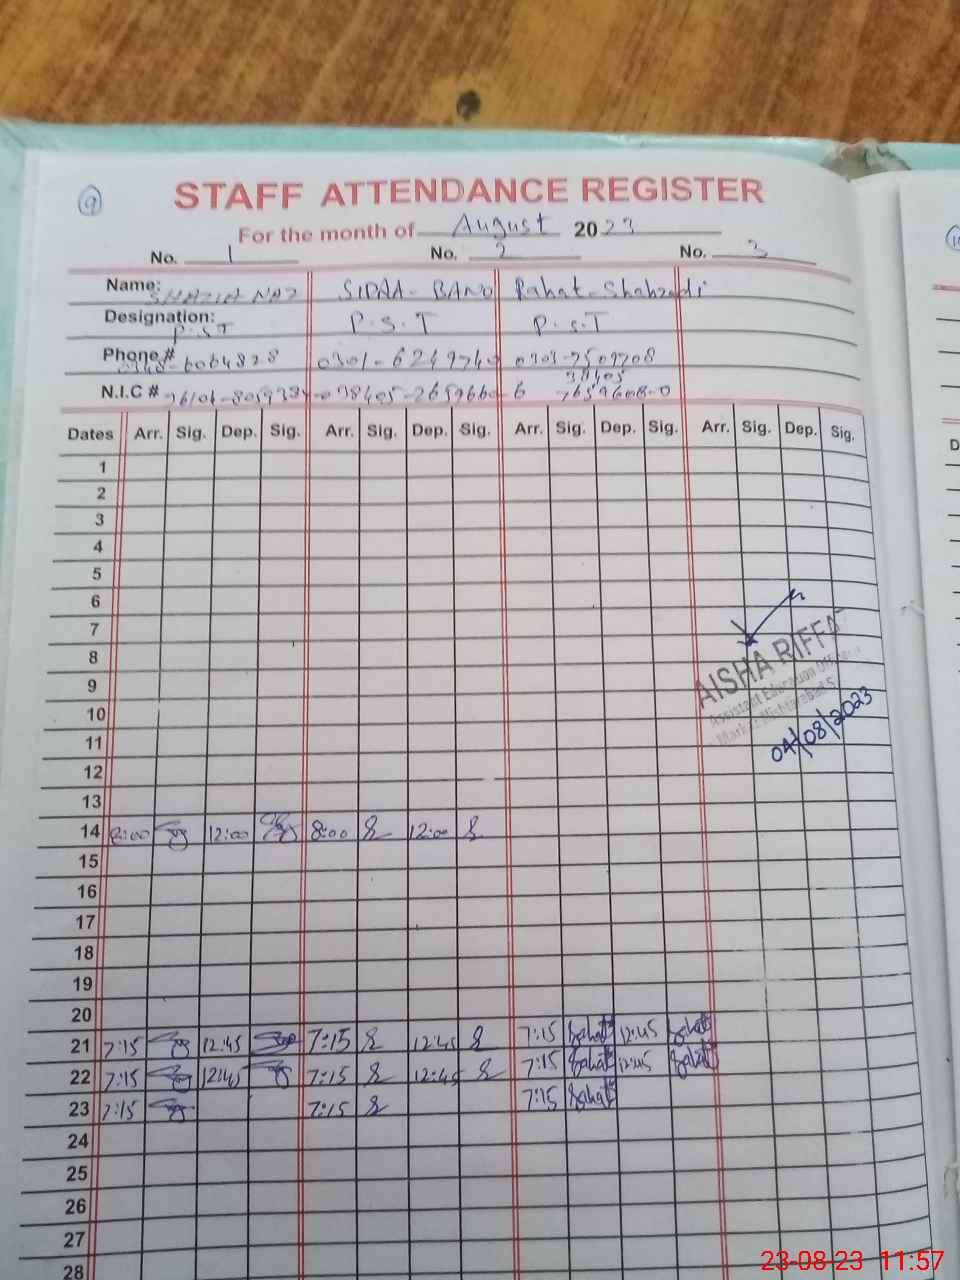 9
STAFF ATTENDANCE REGISTER
For the month of August 2023
No. 1 No. 2 No. 3
Name: SHAZIA NAZ SIDRA-BANO Rahat-Shahzadi
Designation: P.S.T P.S.T P.S.T
Phone # 0348-6064828 0301-6249740 0303-7509708
38405
N.I.C #
Dates Arr. Sig. Dep. Sig. Arr. Sig. Dep. Sig. Arr. Sig. Dep. Sig. Arr. Sig. Dep. Sig.
1
2
3
4
5
6
7
8
9
10
11
12
13
AISHA RIFFAT
Assistant Education Officer
04/08/2023
14 8:00 12:00 8:00 12:00
15
16
17
18
19
20
21 7:15 12:45 7:15 12:45 7:15 Rahat 12:45 Rahat
22 7:15 12:45 7:15 12:45 7:15 Rahat 12:45 Rahat
23 7:15 7:15 7:15 Rahat
24
25
26
27
28
23-08-23 11:57